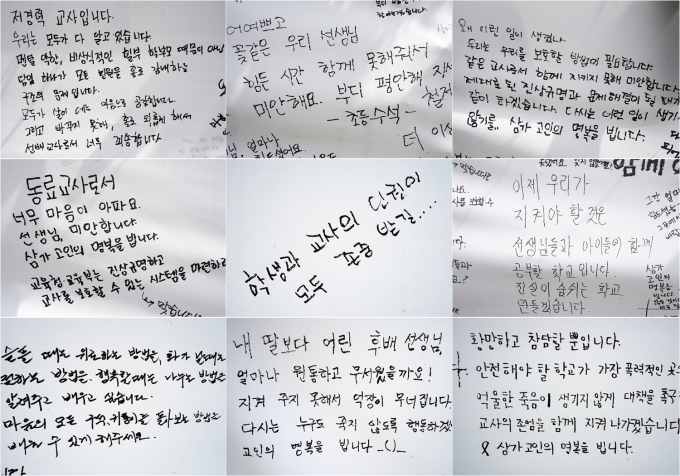 저경력 교사입니다.
우리는 모두가 다 알고 있습니다.
멘탈 약한, 비상식적인 일부 학부모 때문이 아닌
담임 하나가 모든 민원을 홀로 감내하는
구조의 문제입니다.
모두가 삶이 어두운 마음으로 공감합니다.
그리고 바꾸지 못해, 홀로 외롭게 해서
선배교사로서 너무 죄송합니다
어여쁘고
꽃같은 우리 선생님
힘든 시간 함께 못해줘서
미안해요. 부디 평안해
- 초등수석 -
얼마나
왜 이런 일이 생겼나
우리는 우리를 보호할 방법이 필요합니다.
같은 교사로서 함께 지키지 못해 미안합니다.
제대로 된 진상규명과 문제해결이 될 때까
같이 하겠습니다. 다시는 이런 일이 생기
않기를, 삼가 고인의 명복을 빕니다.
동료교사로서
너무 마음이 아파요.
선생님, 미안합니다.
삼가 고인의 명복을 빕니다.
교육청, 교육부는 진상규명하고
교사를 보호할 수 있는 시스템을 마련하
맞습니다
학생과 교사의 인권이
모두 존중 받길....
이제 우리가
지켜야 할 것은
선생님들과 아이들이 함께
공부할 학교입니다.
진실이 숨쉬는 학교
만들겠습니다.
삼가
고인의
명복을
빕니다
슬플 때는 위로하는 방법을, 화가 날때는
표현하는 방법을. 행복할때는 나누는 방법을
알려주고 배우고 있습니다.
마음의 모든 구석, 귀퉁이를 돌아보는 방법은
배울 수 있게 해주세요.
내 딸보다 어린 후배 선생님
얼마나 원통하고 무서웠을까요!
지켜 주지 못해서 억장이 무너집니다.
다시는 누구도 죽지 않도록 행동하겠
고인의 명복을 빕니다 _()_
황망하고 참담할 뿐입니다.
안전해야 할 학교가 가장 폭력적인 곳
억울한 죽음이 생기지 않게 대책을 촉구
교사의 존엄을 함께 지켜 나가겠습니다
삼가 고인의 명복을 빕니다.